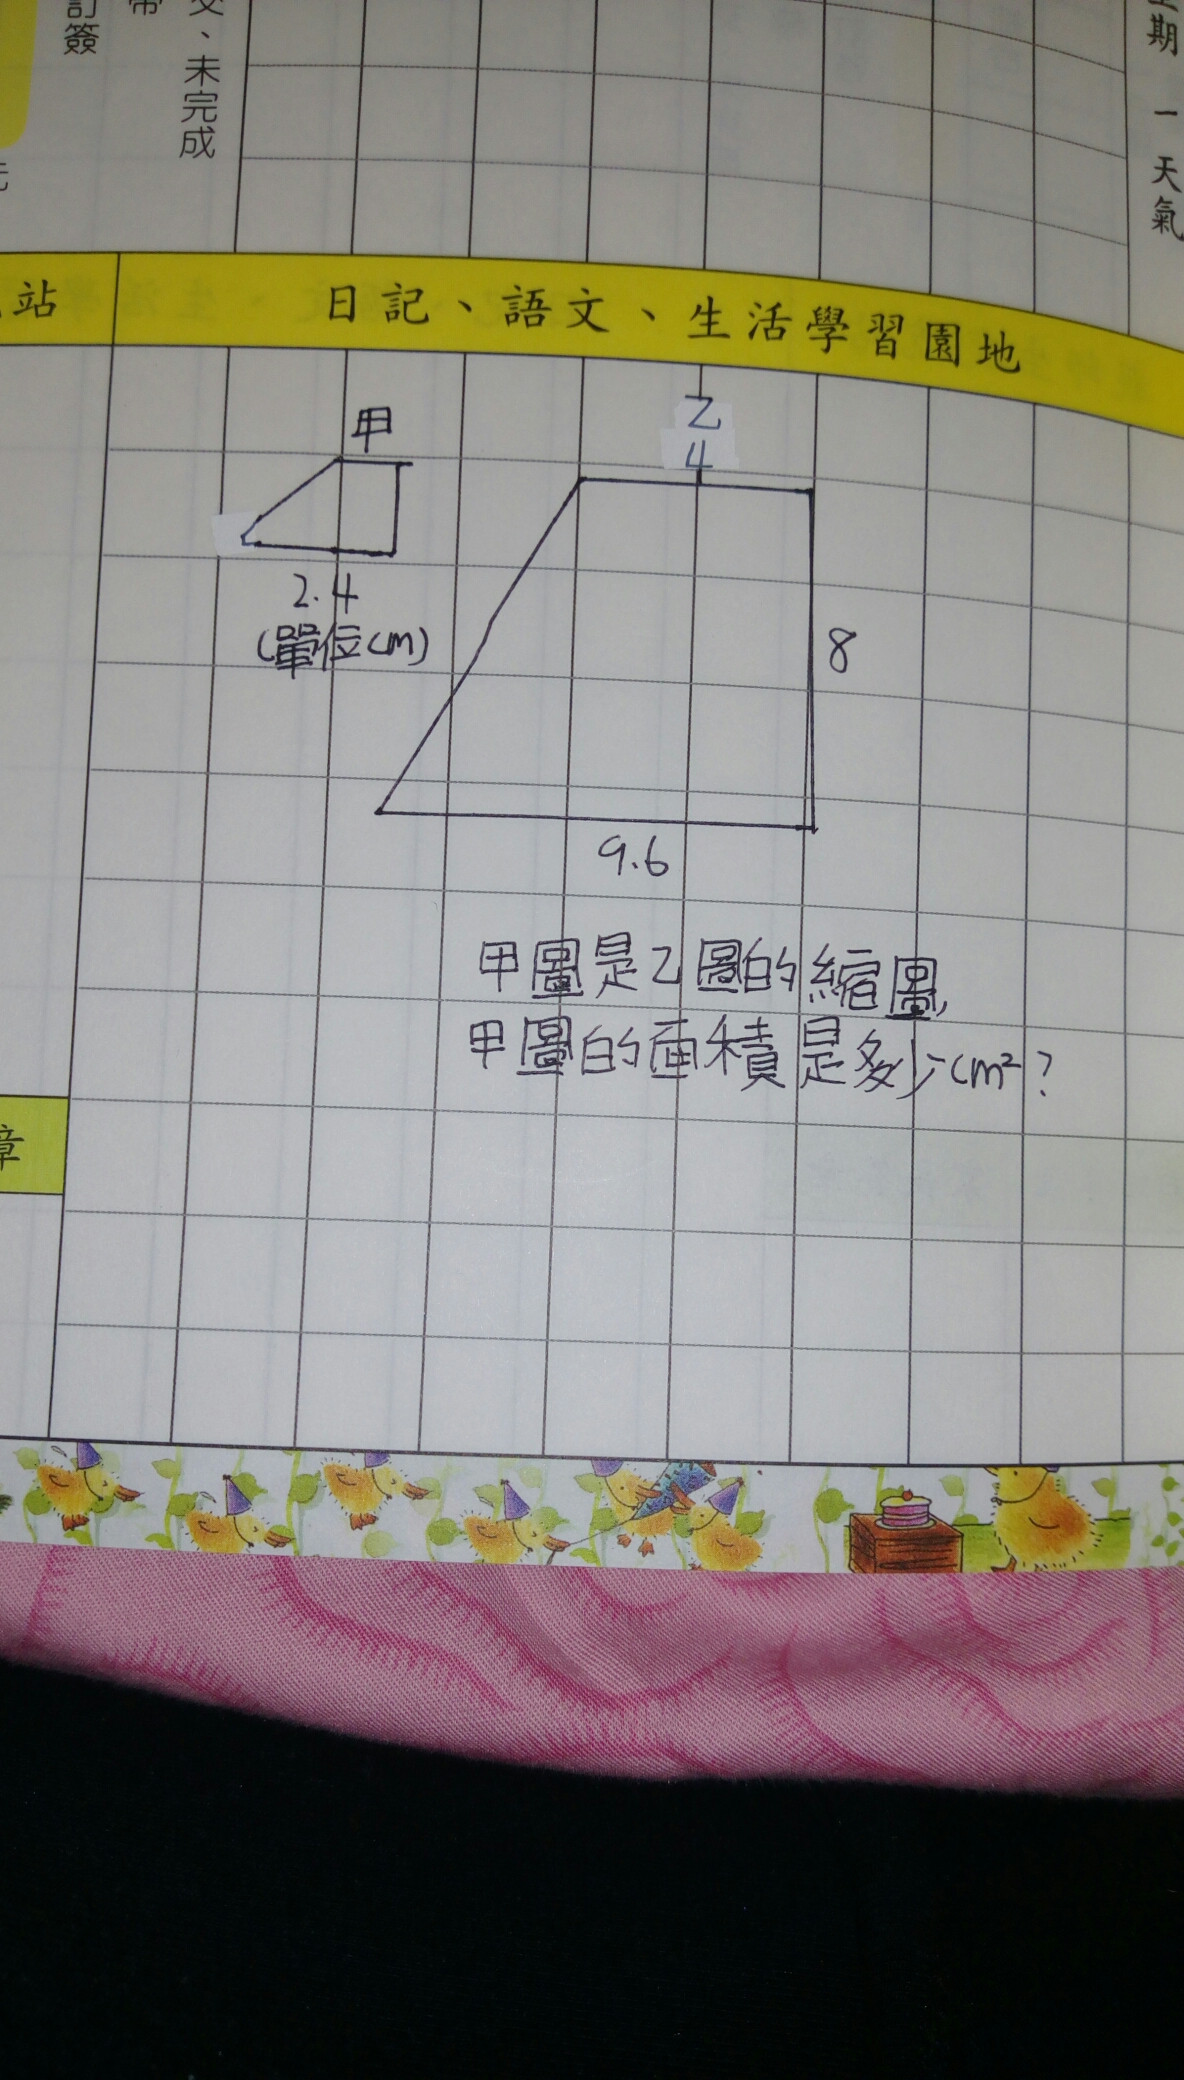 訂簽
交、未完成
期 一 天氣
站
日記、語文、生活學習園地
甲
乙
4
2.4
(單位cm)
8
9.6
甲圖是乙圖的縮圖,
甲圖的面積是多少cm²?
章